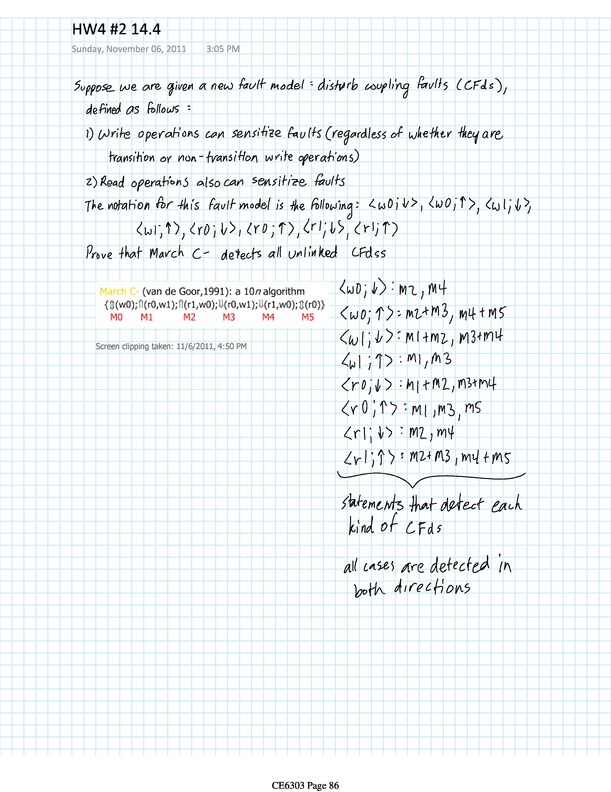 HW4 #2 14.4
Sunday, November 06, 2011 3:05 PM
Suppose we are given a new fault model : disturb coupling faults (CFds),
defined as follows :
1) Write operations can sensitize faults (regardless of whether they are
transition or non-transition write operations)
2) Read operations also can sensitize faults
The notation for this fault model is the following: <w0;↓>, <w0;↑>, <w1;↓>,
<w1;↑>, <r0;↓>, <r0;↑>, <r1;↓>, <r1;↑>
Prove that March C- detects all unlinked CFdss
March C- (van de Goor,1991): a 10n algorithm
{⇕(w0);⇑(r0,w1);⇑(r1,w0);⇓(r0,w1);⇓(r1,w0);⇕(r0)}
M0 M1 M2 M3 M4 M5
Screen clipping taken: 11/6/2011, 4:50 PM
<w0;↓> : m2, m4
<w0;↑> : m2+m3, m4+m5
<w1;↓> : m1+m2, m3+m4
<w1;↑> : m1, m3
<r0;↓> : m1+m2, m3+m4
<r0;↑> : m1, m3, m5
<r1;↓> : m2, m4
<r1;↑> : m2+m3, m4+m5
statements that detect each
kind of CFds
all cases are detected in
both directions
CE6303 Page 86